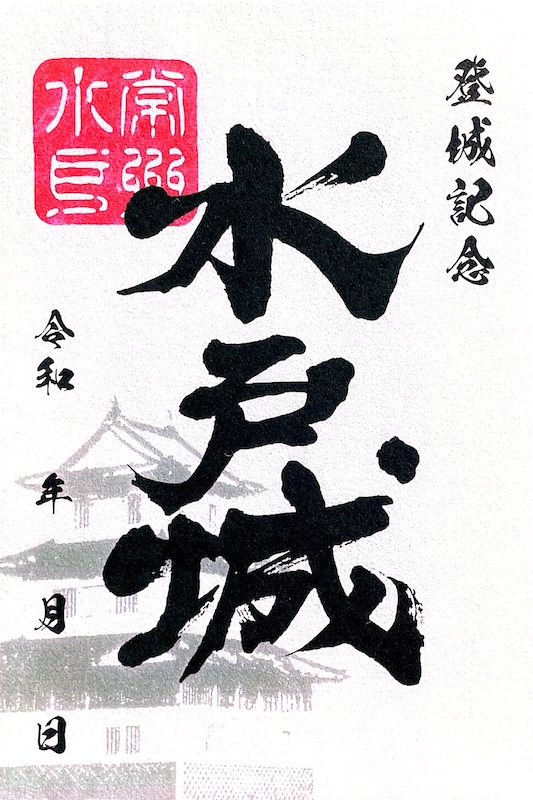 登城記念
水戸城
常磐
水戸
令和 年 月 日